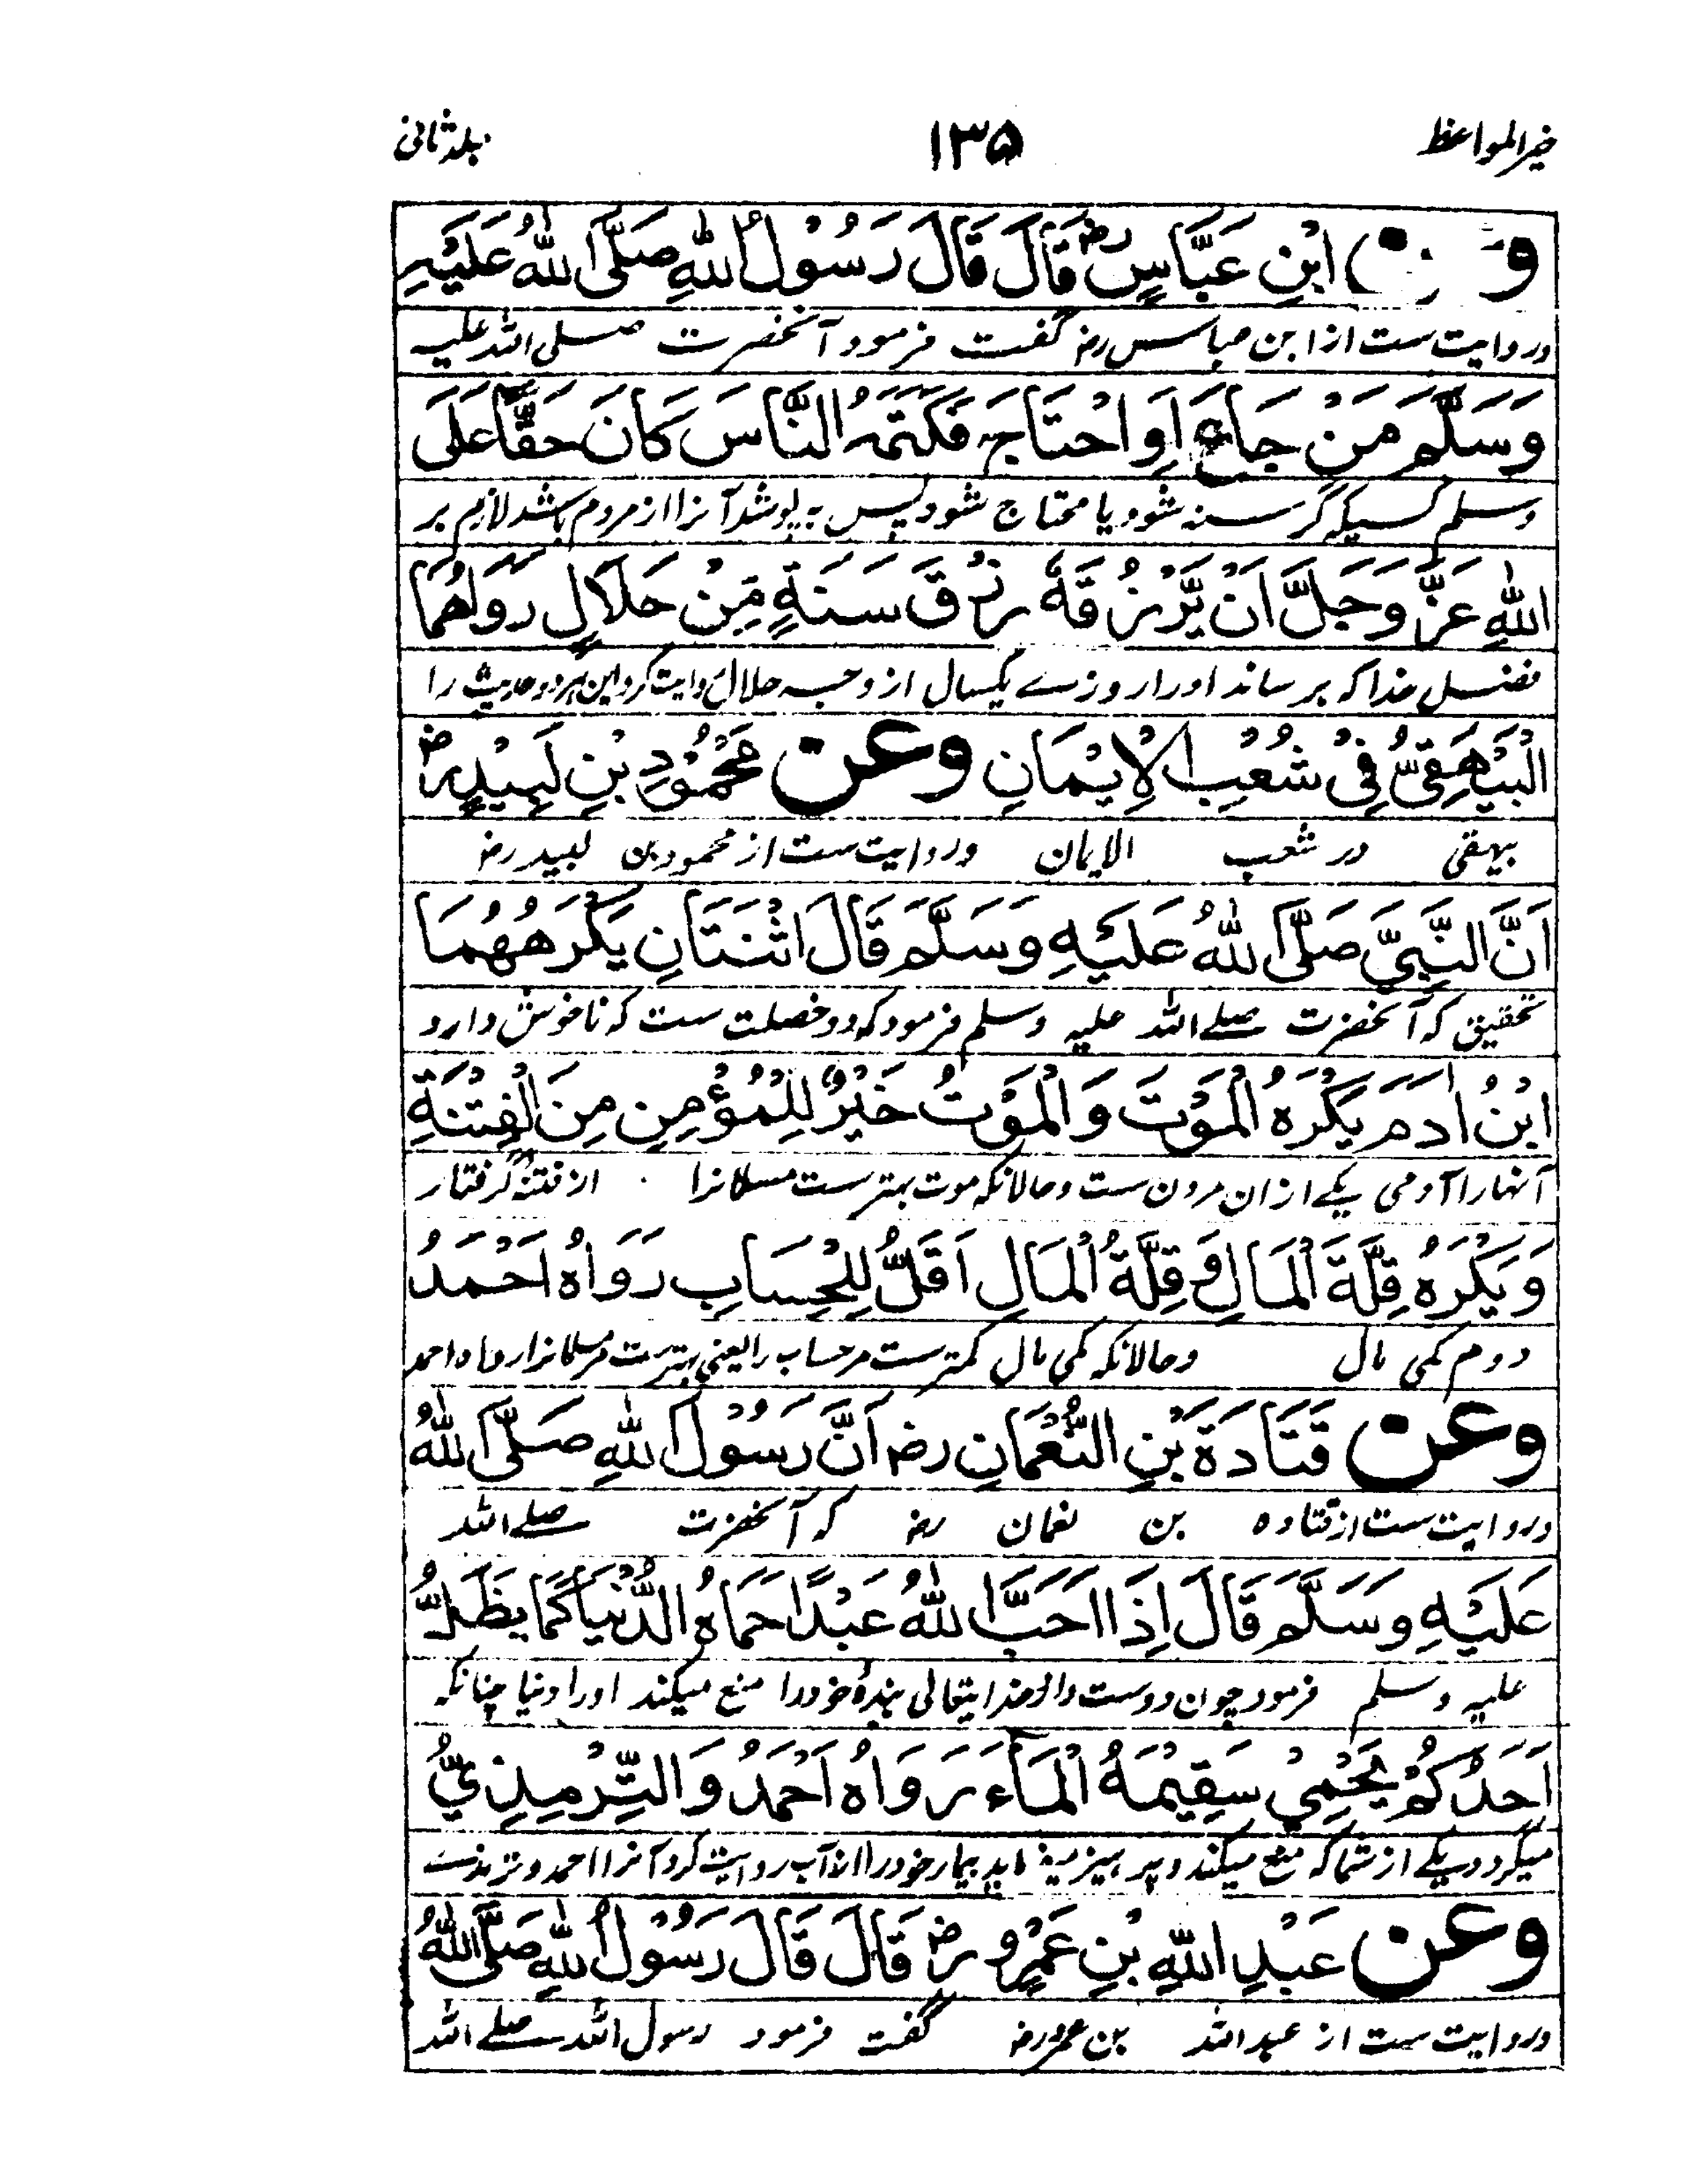 خیرالمواعظ ۱۳۵ جلد ثانی
وَعَنِ ابْنِ عَبَّاسٍ رض قَالَ قَالَ رَسُوْلُ اللّٰهِ صَلَّى اللّٰهُ عَلَيْهِ
وروایت ست از ابن عباس رض گفت فرمود آنحضرت صلی اللہ علیہ
وَسَلَّمَ مَنْ جَاعَ اَوِ احْتَاجَ فَكَتَمَهُ النَّاسَ كَانَ حَقًّا عَلَى
وسلم کسیکہ گرسنہ شود یا محتاج شود پس بپوشد آنرا از مردم باشد لازم بر
اللّٰهِ عَزَّ وَجَلَّ اَنْ يَّرْزُقَهٗ رِزْقَ سَنَةٍ مِّنْ حَلَالٍ رَوَاهُمَا
فضل خدا کہ برساند او را روزے یکسال از وجہ حلال روایت کرد این ہر دو حدیث را
الْبَيْهَقِيُّ فِيْ شُعَبِ الْاِيْمَانِ وَعَنْ مَحْمُوْدِ بْنِ لَبِيْدٍ رض
بیہقی در شعب الایمان وروایت ست از محمود بن لبید رض
اَنَّ النَّبِيَّ صَلَّى اللّٰهُ عَلَيْهِ وَسَلَّمَ قَالَ اثْنَتَانِ يَكْرَهُهُمَا
تحقیق کہ آنحضرت صلے اللہ علیہ وسلم فرمود کہ دو خصلت ست کہ ناخوش دارد
ابْنُ اٰدَمَ يَكْرَهُ الْمَوْتَ وَالْمَوْتُ خَيْرٌ لِّلْمُؤْمِنِ مِنَ الْفِتْنَةِ
آنہا را آدمی یکے ازان مردن ست وحالانکہ موت بہتر ست مسلمانرا از فتنہ گرفتار
وَيَكْرَهُ قِلَّةَ الْمَالِ وَقِلَّةُ الْمَالِ اَقَلُّ لِلْحِسَابِ رَوَاهُ اَحْمَدُ
دوم کمی مال وحالانکہ کمی مال کمتر ست مر حساب را یعنی بہتر ست مر مسلمانرا رواہ احمد
وَعَنْ قَتَادَةَ بْنِ النُّعْمَانِ رض اَنَّ رَسُوْلَ اللّٰهِ صَلَّى اللّٰهُ
وروایت ست از قتادہ بن نعمان رض کہ آنحضرت صلے اللہ
عَلَيْهِ وَسَلَّمَ قَالَ اِذَا اَحَبَّ اللّٰهُ عَبْدًا حَمَاهُ الدُّنْيَا كَمَا يَظَلُّ
علیہ وسلم فرمود چون دوست دارد خدایتعالی بندۂ خود را منع میکند او را دنیا چنانکہ
اَحَدُكُمْ يَحْمِيْ سَقِيْمَهُ الْمَاءَ رَوَاهُ اَحْمَدُ وَالتِّرْمِذِيُّ
میگردد یکے از شما کہ منع میکند و پرہیز میفرماید بیمار خود را از آب روایت کرد آنرا احمد و ترمذے
وَعَنْ عَبْدِ اللّٰهِ بْنِ عَمْرٍو رض قَالَ قَالَ رَسُوْلُ اللّٰهِ صَلَّى اللّٰهُ
وروایت ست از عبد اللہ بن عمرو رض گفت فرمود رسول اللہ صلے اللہ